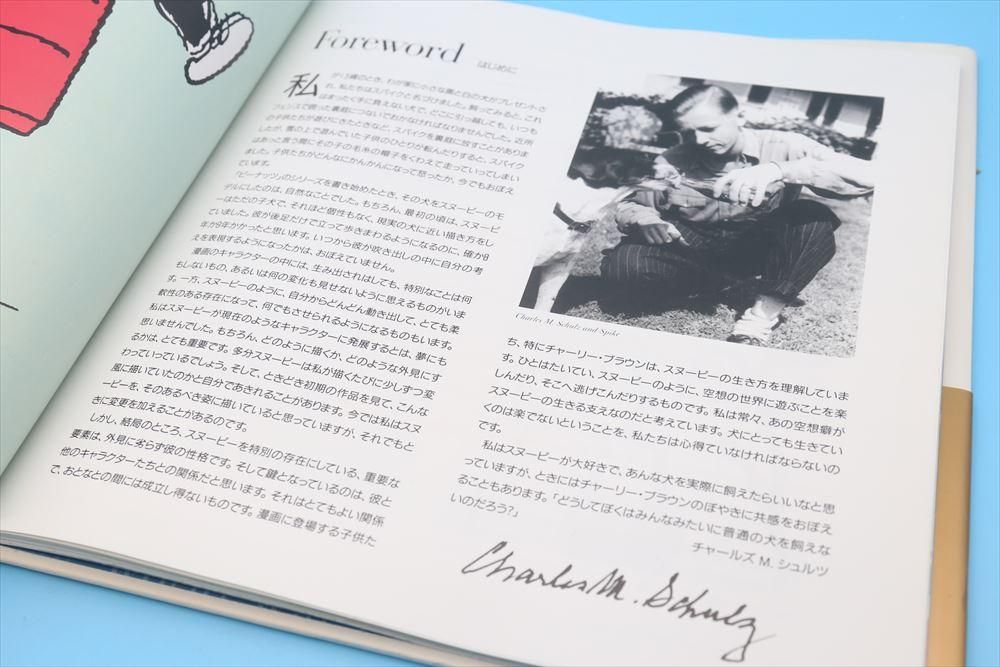 Foreword はじめに
私が13歳のとき、わが家に小さな黒と白の犬がプレゼントさ
れ、私たちはスパイクと名づけました。飼ってみると、これ
はまったく手に負えない犬で、どこに引っ越しても、いつも
フェンスで囲った裏庭につないでおかなければなりませんでした。近所
の子供たちが遊びにきたときなど、スパイクを裏庭に放すことがありま
したが、雪の上で遊んでいた子供のひとりが転んだりすると、スパイク
はあっと言う間にその子の毛糸の帽子をくわえて走っていってしまい
ました。子供たちがどんなにかんかんになって怒ったか、今でもおぼえ
ています。
「ピーナッツ」のシリーズを書き始めたとき、その犬をスヌーピーのモ
デルにしたのは、自然なことでした。もちろん、最初の頃は、スヌーピ
ーはただの子犬で、それほど個性もなく、現実の犬に近い描き方をし
ていました。彼が後足だけで立って歩きまわるようになるのに、確か8
年か9年かかったと思います。いつから彼が吹き出しの中に自分の考
えを表現するようになったかは、おぼえていません。
漫画のキャラクターの中には、生み出されはしても、特別なことは何
もしないもの、あるいは何の変化も見せないように思えるものがいま
す。一方、スヌーピーのように、自分からどんどん動き出して、とても柔
軟性のある存在になって、何でもさせられるようになるものもいます。
私はスヌーピーが現在のようなキャラクターに発展するとは、夢にも
思いませんでした。もちろん、どのように描くか、どのような外見にす
るかは、とても重要です。多分スヌーピーは私が描くたびに少しずつ変
わっていっているでしょう。そして、ときどき初期の作品を見て、こんな
風に描いていたのかと自分であきれることがあります。今では私はスヌ
ーピーを、そのあるべき姿に描いていると思っていますが、それでもと
きに変更を加えることがあるのです。
しかし、結局のところ、スヌーピーを特別の存在にしている、重要な
要素は、外見に劣らず彼の性格です。そして鍵となっているのは、彼と
他のキャラクターたちとの関係だと思います。それはとてもよい関係
で、おとなとの間には成立し得ないものです。漫画に登場する子供た
Charles M. Schulz and Spike
ち、特にチャーリー・ブラウンは、スヌーピーの生き方を理解していま
す。ひとはたいてい、スヌーピーのように、空想の世界に遊ぶことを楽
しんだり、そこへ逃げこんだりするものです。私は常々、あの空想癖が
スヌーピーの生きる支えなのだと考えています。犬にとっても生きてい
くのは楽でないということを、私たちは心得ていなければならないの
です。
私はスヌーピーが大好きで、あんな犬を実際に飼えたらいいなと思
っていますが、ときにはチャーリー・ブラウンのぼやきに共感をおぼえ
ることもあります。「どうしてぼくはみんなみたいに普通の犬を飼えな
いのだろう?」
チャールズ M. シュルツ
Charles M. Schulz